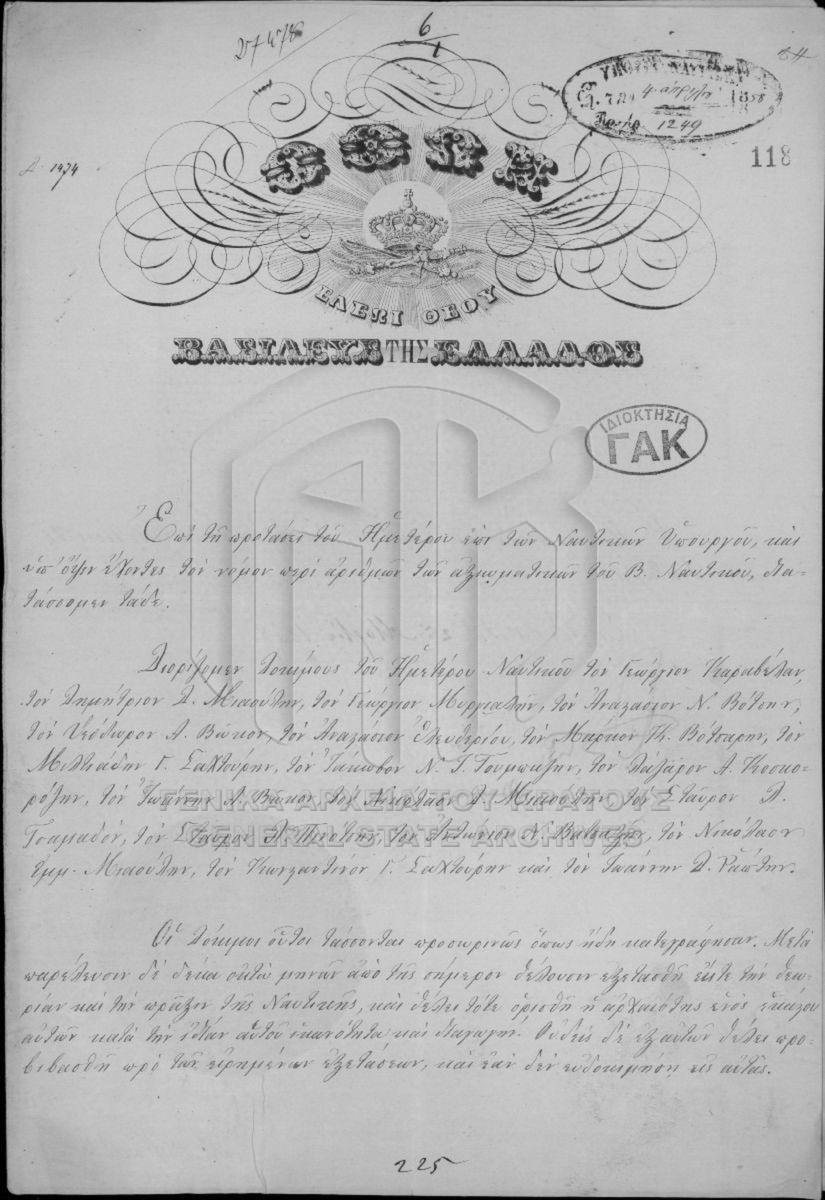 6/1
118
1474
ΥΠΟΥΡΓ. ΝΑΥΤΙΚ
τῃ 4 ἀπριλίου 1858
Πρωτ. 1249
ΟΘΩΝ
ΕΛΕΩΙ ΘΕΟΥ
ΒΑΣΙΛΕΥΣ ΤΗΣ ΕΛΛΑΔΟΣ
ΙΔΙΟΚΤΗΣΙΑ
ΓΑΚ
Ἐπὶ τῇ προτάσει τοῦ Ἡμετέρου ἐπὶ τῶν Ναυτικῶν Ὑπουργοῦ, καὶ
ὑπ' ὄψιν ἔχοντες τὸν νόμον περὶ ἀριθμοῦ τῶν ἀξιωματικῶν τοῦ Β. Ναυτικοῦ, δια-
τάσσομεν τάδε.
Διορίζομεν Δοκίμους τοῦ Ἡμετέρου Ναυτικοῦ τὸν Γεώργιον Καραβέλαν,
τὸν Δημήτριον Δ. Μιαούλην, τὸν Γεώργιον Μυργιαλῆν, τὸν Ἀναστάσιον Ν. Βότσην,
τὸν Θεόδωρον Α. Βῶκον, τὸν Ἀναστάσιον Ἐλευθερίου, τὸν Μάρκον Κ. Βότσαρην, τὸν
Μιλτιάδην Γ. Σαχτούρην, τὸν Ἰάκωβον Ν. Ι. Τουμπάζην, τὸν Λάζαρον Α. Κοσκο-
ρόζην, τὸν Ἰωάννην Α. Βῶκον, τὸν Νικόλαον Δ. Μιαούλην, τὸν Σταῦρον Δ.
Τσαμαδόν, τὸν Σταῦρον Δ. τὸν Ἀντώνιον Ν. τὸν Νικόλαον
Ἐμμ. Μιαούλην, τὸν Κωνσταντῖνον Γ. Σαχτούρην καὶ τὸν Ἰωάννην Δ. Ῥαφτην.
ΓΕΝΙΚΑ ΑΡΧΕΙΑ ΤΟΥ ΚΡΑΤΟΥΣ
GENERAL STATE ARCHIVES
Οἱ Δόκιμοι οὗτοι τάσσονται προσωρινῶς ὅπως ἤδη κατεγράφησαν. Μετὰ
παρέλευσιν δὲ δέκα ὀκτὼ μηνῶν ἀπὸ τῆς σήμερον θέλουσιν ἐξετασθῆ εἴς τε τὴν θεω-
ρίαν καὶ τὴν πρᾶξιν τῆς Ναυτικῆς, καὶ θέλει τότε ὁρισθῆ ἡ ἀρχαιότης ἑνὸς ἑκάστου
αὐτῶν κατὰ τὴν ἰδίαν αὐτοῦ ἱκανότητα καὶ διαγωγήν. Οὐδεὶς δὲ ἐξ αὐτῶν θέλει προ-
βιβασθῆ πρὸ τῶν εἰρημένων ἐξετάσεων, καὶ ἐὰν δὲν εὐδοκιμήσῃ εἰς αὐτάς.
225